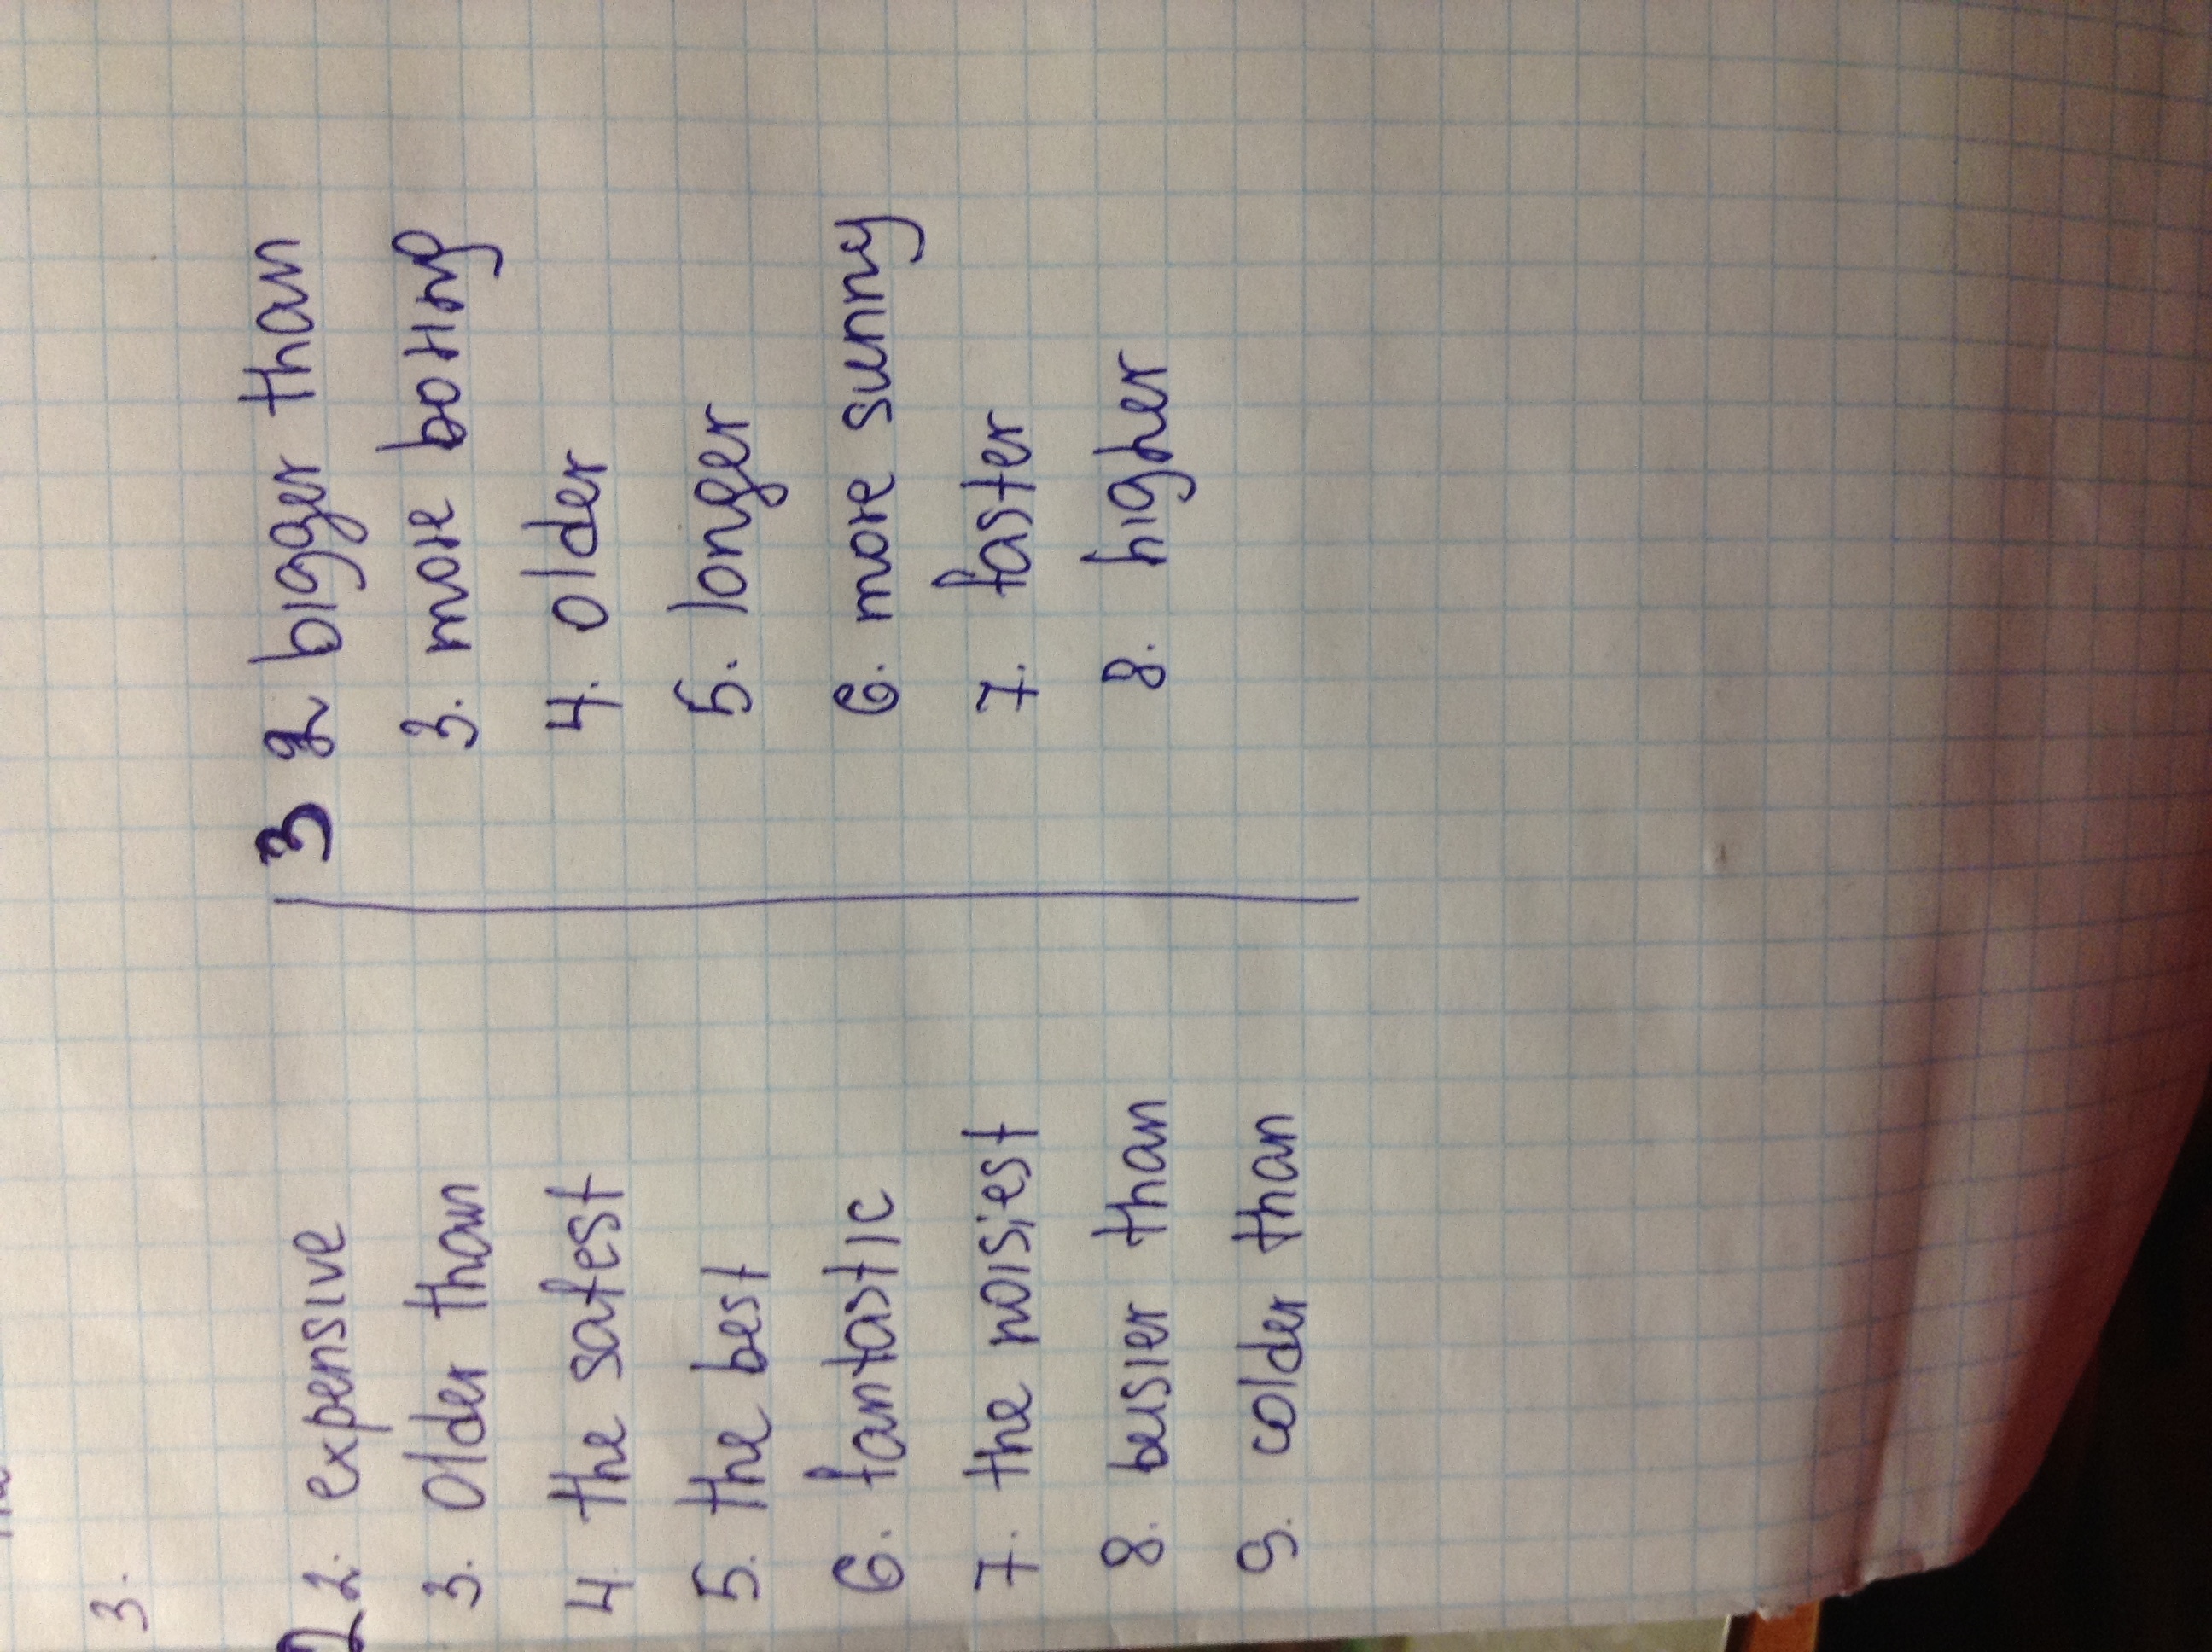 3.
2 2. expensive
3. older than
4. the safest
5. the best
6. fantastic
7. the noisiest
8. busier than
9. colder than
3 2 bigger than
3. more boring
4. older
5. longer
6. more sunny
7. faster
8. higher